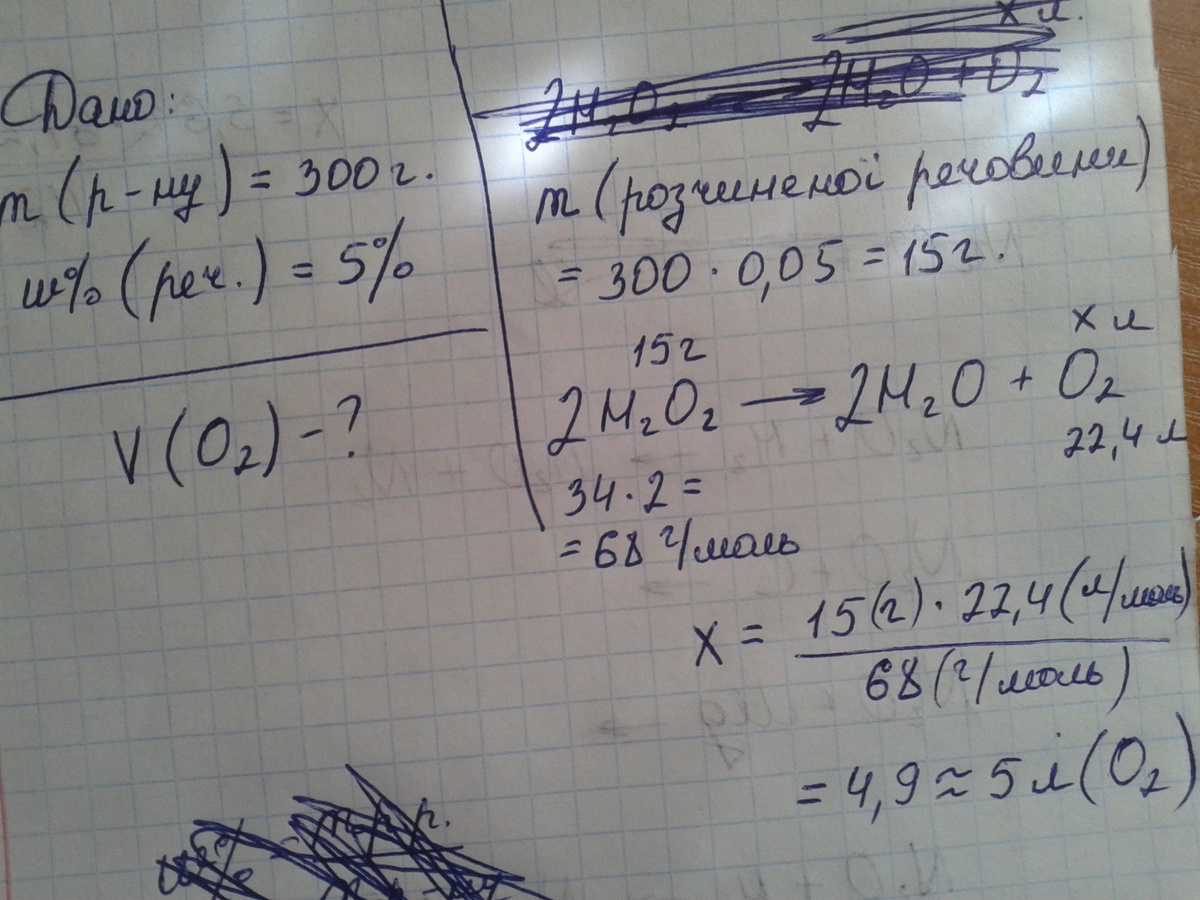 Дано:
m (р-ну) = 300 г.
w% (реч.) = 5%
V (O₂) - ?
x л.
2H₂O₂ → 2H₂O + O₂
m (розчиненої речовини)
= 300 · 0,05 = 15 г.
15 г x л
2H₂O₂ → 2H₂O + O₂
22,4 л
34 · 2 =
= 68 г/моль
x = 15(г) · 22,4 (л/моль)
68 (г/моль)
= 4,9 ≈ 5 л (O₂)